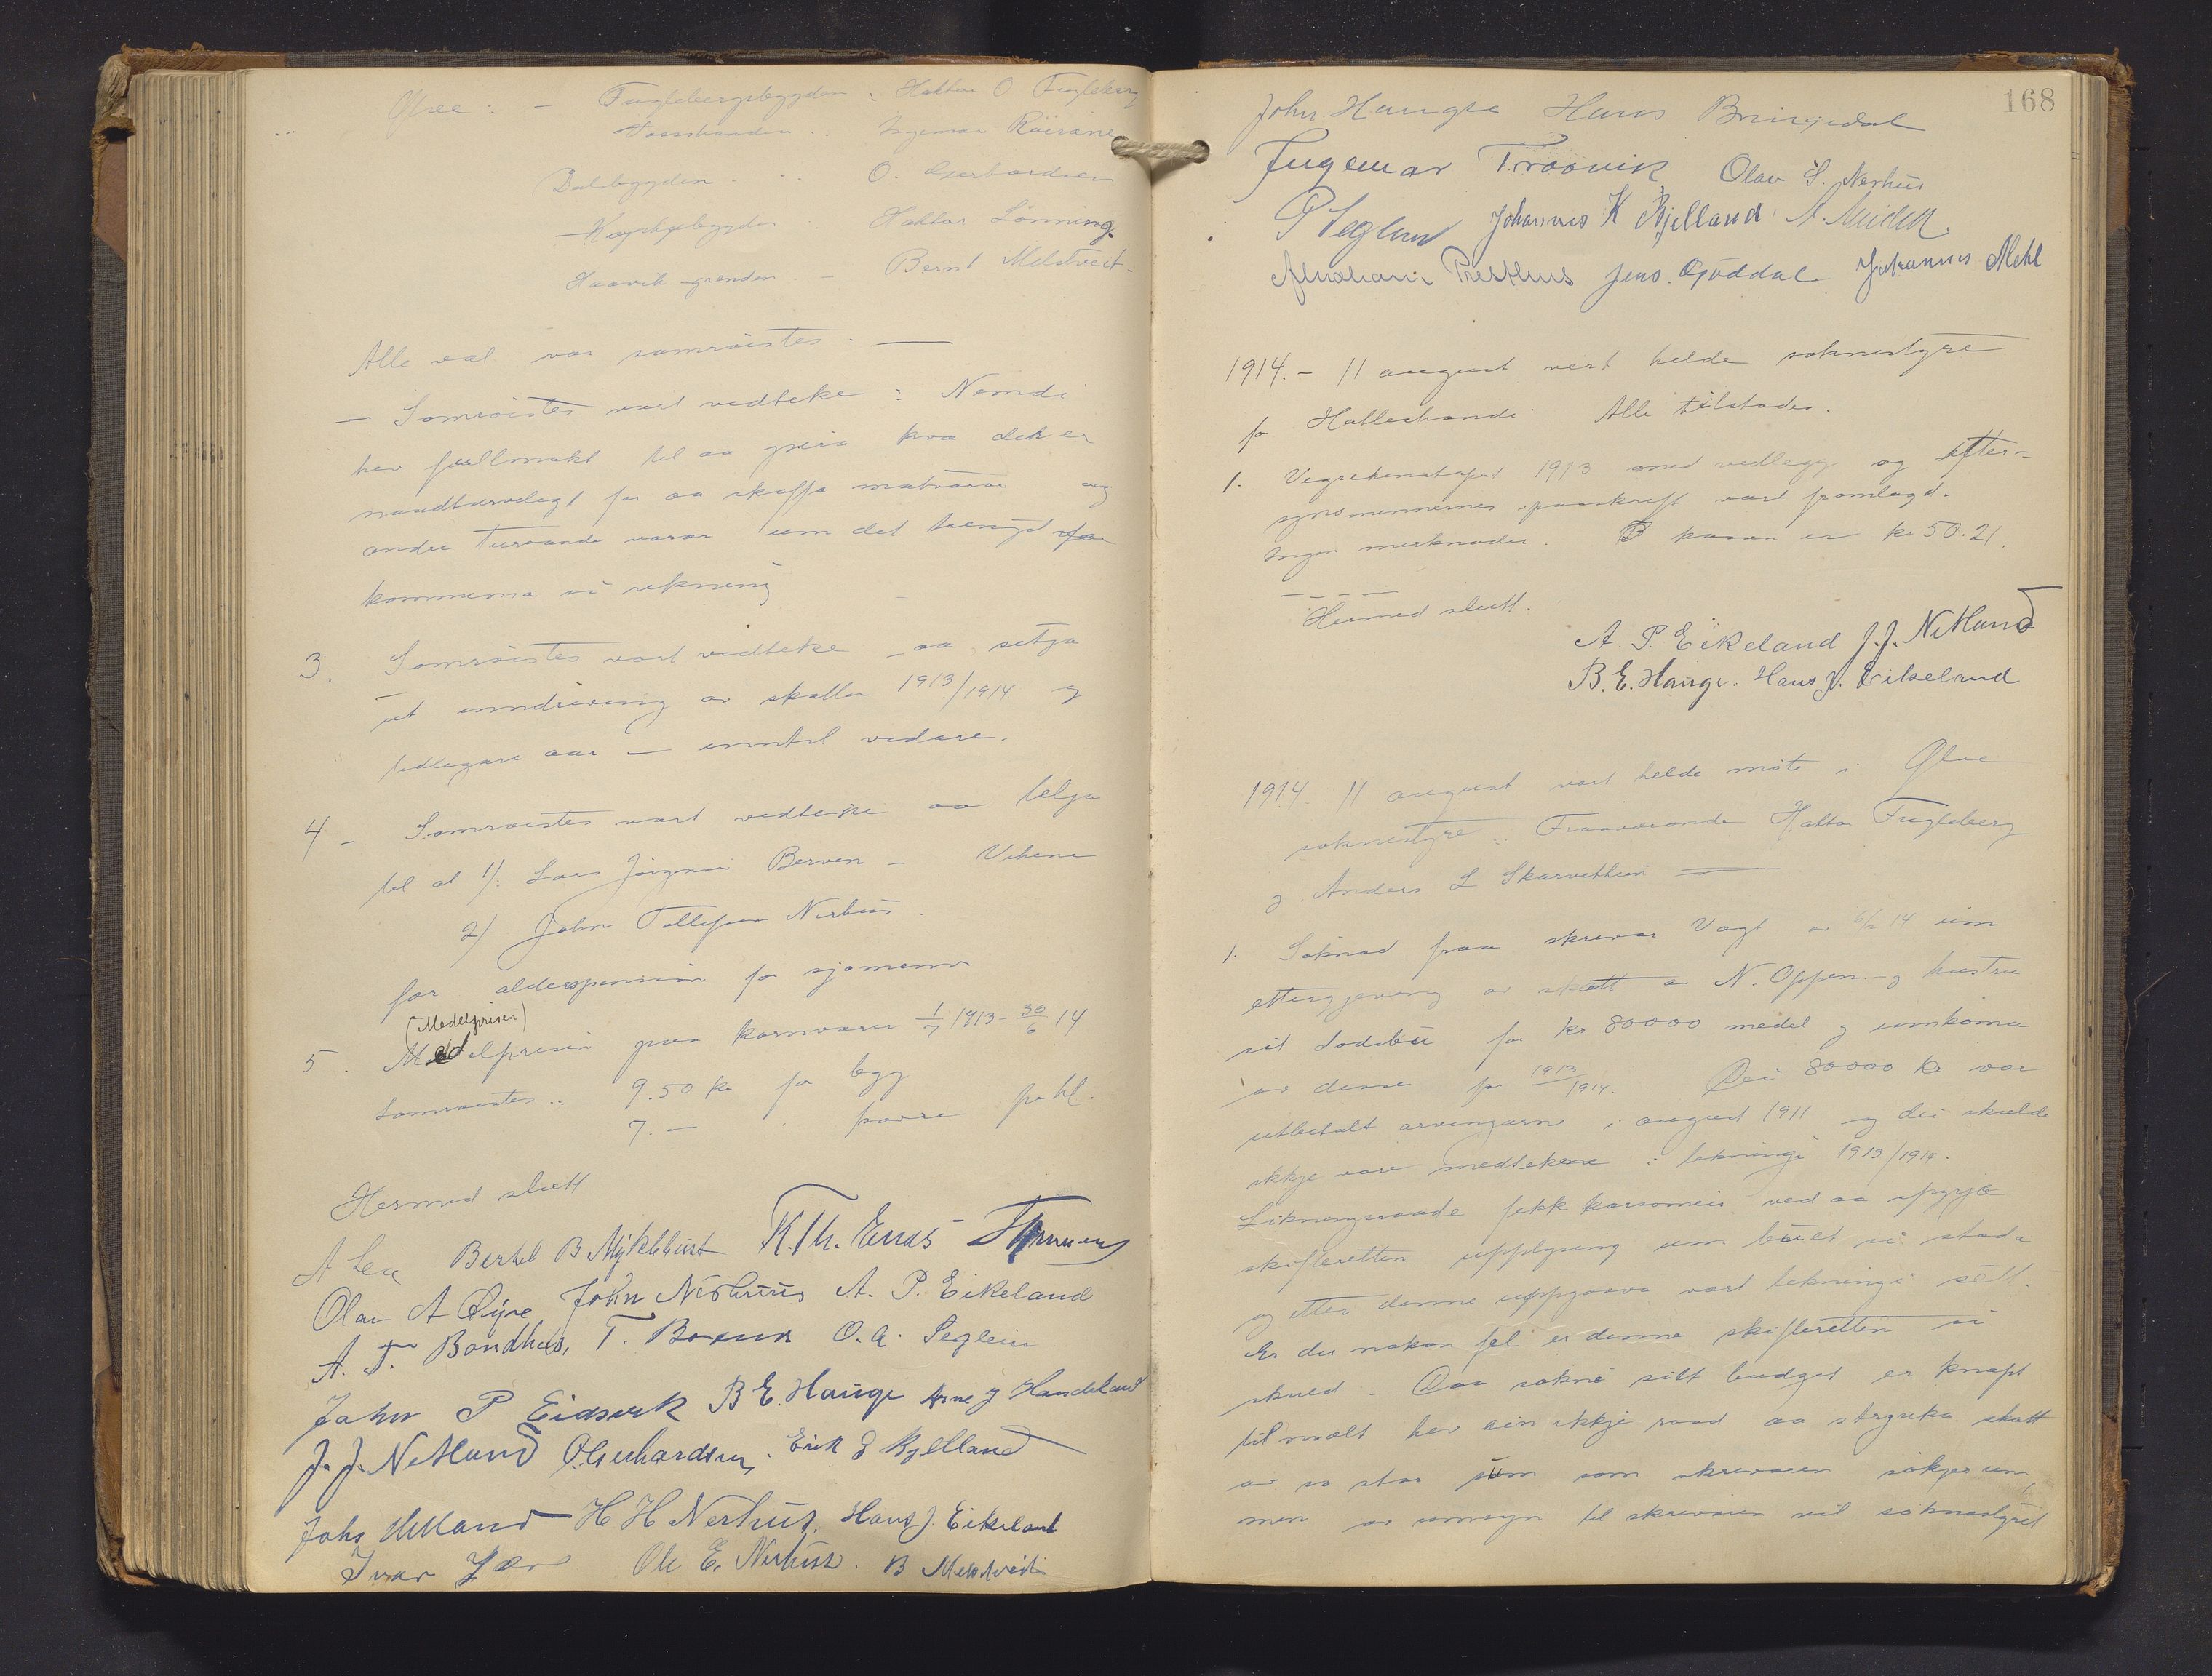 Ølve: - Fuglebergsbygden: Haktor O Fugleberg
Ingemar Röirane
Dalabygden O. Gerhardsen
Haktor Lönning
Haavik-grenden - Bernt Melstveit.
Alle val var samröistes. —
— Samröistes vart vedteke: Nemdi
hev fullmakt til aa greia kva det er
naudturvelegt for aa skaffa matvaror og
andre turvande varor um det trengst
kommuna si rekning
3. Samröistes vart vedteke aa setja
ut inndriving av skatten 1913/1914 og
tidlegare aar — inntil vidare.
4 - Samröistes vart vedteke aa telja
til at 1): Lars Jörgen Berven - Vikene
2) John Tollefsen Nerhus.
for alderspension for sjömenn
(Medelprisen)
5. Medelprisen paa kornvarer 1/7 1913 - 30/6 14
Samröistes: 9.50 kr for bygg
7. — " havre pr hl.
Hermed slutt
A Lea Berthel B Myklebust K. Th. Enes
Olav A Öyre John Nerhus A. P. Eikeland
A. T. Bondhus, T. O. A. Seglem
John P Eidsvik B E. Hauge Arne J Handeland
J. J. Netland O. Gerhardsen. Erik G Kjelland
Johs Netland H H Nerhus. Hans J. Eikeland
Ivar Ole E. Nerhus. B Melstveit
168
John Haugse Hans Bringedal
Ingemar Traavik Olav S. Nerhus
P Seglem Johannes K Kjelland A.
Abraham Presthus Jens. Gjöddal Johannes Mehl
1914. - 11 august vert helde soknestyre
på Hatlestrandi Alle tilstades.
1. Vegrekenskapet 1913 med vedlegg og efter-
synsmennernes paaskrift vart framlagd.
Ingen merknader. B kassen er kr 50.21.
Hermed slutt.
A. P. Eikeland J. J. Netland
B. E. Hauge. Hans J. Eikeland
1914. 11 august vart helde möte i Ølve
soknestyre. Fraaverande Haktor Fugleberg
og Anders L Skarvatun
1. Söknad fraa skrivar Vogt av 14 um
ettergjeving av skatt av N. Oppen og hustru
sit dödsbu for kr 80000 medel og innkoma
av desse for 1913/1914. Dei 80000 kr var
utbetalt arvingarne i august 1911 og dei skulde
ikkje vore medtekne i likningi 1913/1914.
Likningsraade fekk ved aa spyrja
skifteretten upplysning um buet si stoda
og etter denne uppgaava vart likningi sett.
Er der nokon feil er denne skifteretten si
skuld - Daa sokne sitt budget er knapt
tilmaalt hev ein ikkje raad aa stryka skatt
av so stor sum som skrivaren sökjer um,
men av umsyn til skrivaren vil soknestyret